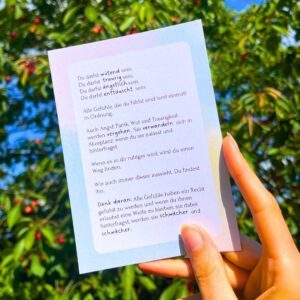 Du darfst wütend sein.
Du darfst traurig sein.
Du darfst ängstlich sein.
Du darfst enttäuscht sein.
Alle Gefühle, die du fühlst sind
in Ordnung.
Auch Angst, Panik, Wut und Traurigkeit
werden vergehen. Sie verwandeln sich in
Akzeptanz, wenn du sie zulässt und
hinterfragst.
Wenn es in dir ruhiger wird, wirst du einen
Weg finden.
Wie auch immer dieser aussieht. Du findest
ihn.
Denk daran: Alle Gefühle haben ein Recht
gefühlt zu werden und wenn du ihnen
erlaubst eine Weile zu bleiben, sie dabei
hinterfragst, werden sie schwächer und
schwächer.